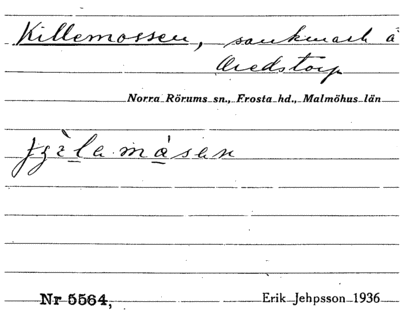 Killemossen, sankmark å
Norra Rörums sn., Frosta hd., Malmöhus län
Nr 5564,
Erik Jehpsson 1936